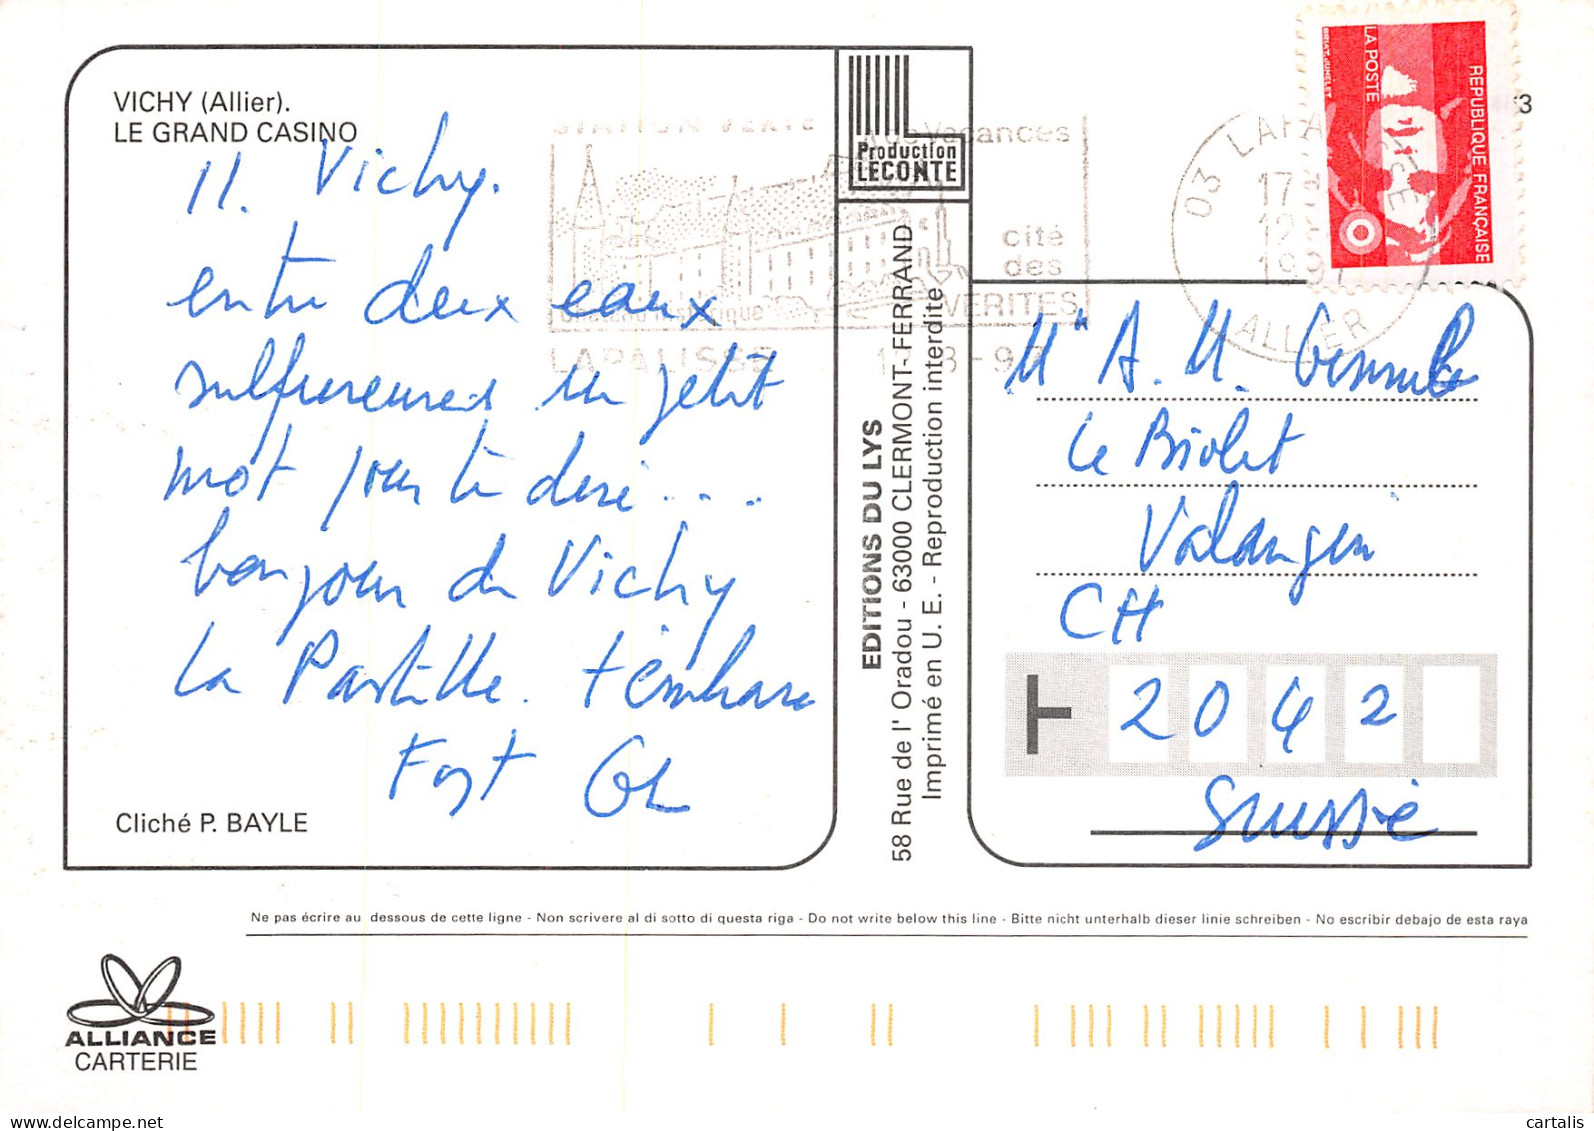 VICHY (Allier).
LE GRAND CASINO
11. Vichy.
entre deux eaux
sulfureuses un petit
mot pour te dire ...
bonjour de Vichy
La Pastille. t'embrasse
Cliché P. BAYLE
STATION VERTE de Vacances
cité
des
VERITES
Château historique
LAPALISSE
Production
LECONTE
EDITIONS DU LYS
58 Rue de l' Oradou - 63000 CLERMONT-FERRAND
Imprimé en U. E. - Reproduction interdite
03 LAPALISSE
17
12
ALLIER
REPUBLIQUE FRANÇAISE
LA POSTE
BRIAT.JUMELET
3
A. M.
Le Biolet
Valangin
CH
2042
Suisse
Ne pas écrire au dessous de cette ligne - Non scrivere al di sotto di questa riga - Do not write below this line - Bitte nicht unterhalb dieser linie schreiben - No escribir debajo de esta raya
ALLIANCE
CARTERIE
delcampe.net
cartalis